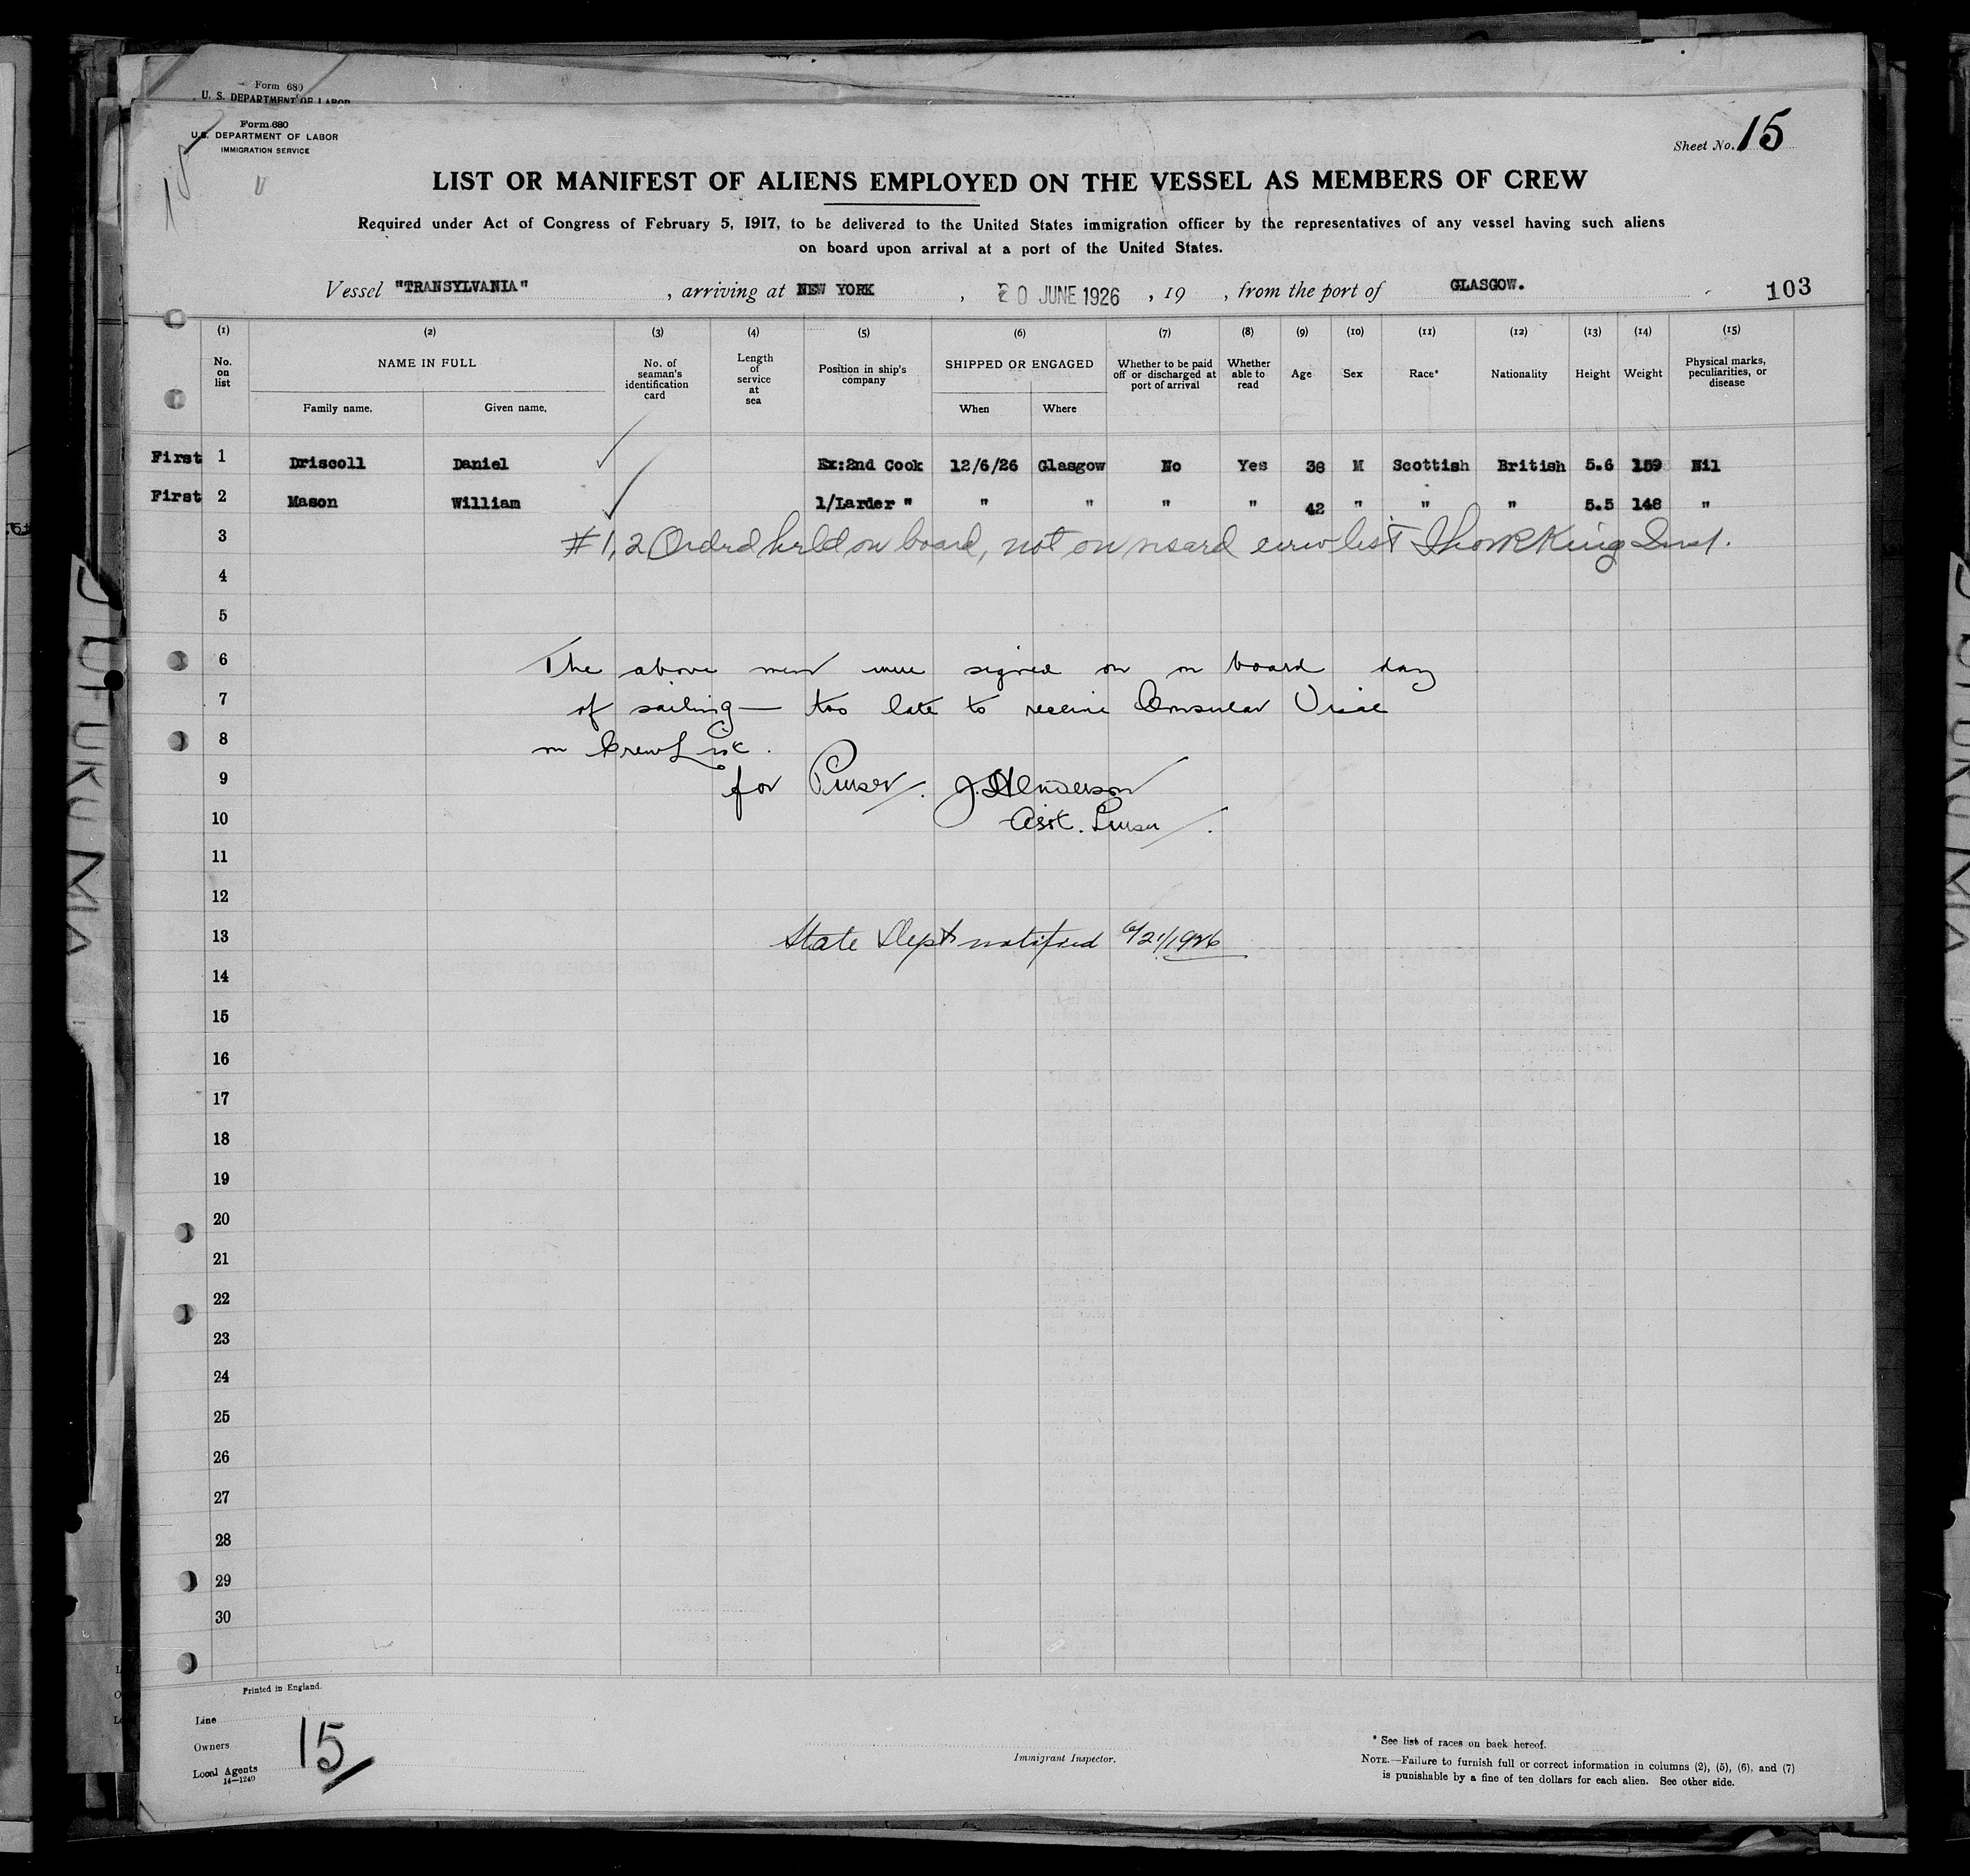 Form 680
U. S. DEPARTMENT OF LABOR
Form 680
U.S. DEPARTMENT OF LABOR
IMMIGRATION SERVICE
Sheet No. 15
LIST OR MANIFEST OF ALIENS EMPLOYED ON THE VESSEL AS MEMBERS OF CREW
Required under Act of Congress of February 5, 1917, to be delivered to the United States immigration officer by the representatives of any vessel having such aliens
on board upon arrival at a port of the United States.
Vessel "TRANSYLVANIA" , arriving at NEW YORK , 20 JUNE 1926 , 19 , from the port of GLASGOW. 103
(1) (2) (3) (4) (5) (6) (7) (8) (9) (10) (11) (12) (13) (14) (15)
No. on list NAME IN FULL Family name. Given name. No. of seaman's identification card Length of service at sea Position in ship's company SHIPPED OR ENGAGED When Where Whether to be paid off or discharged at port of arrival Whether able to read Age Sex Race* Nationality Height Weight Physical marks, peculiarities, or disease
First 1 Driscoll Daniel ✓ Ex:2nd Cook 12/6/26 Glasgow No Yes 38 M Scottish British 5.6 159 Nil
First 2 Mason William ✓ 1/Larder " " " " " 42 " " " 5.5 148 "
3 #1,2 Ordrd held on board, not on visard crew list King Insp.
4
5
6 The above men were signed on on board day
7 of sailing — too late to receive Consular Visae
8 on Crew List.
9 for Purser. J. Henderson
10 Asst. Purser.
11
12
13 State Dept notified 6/21/1926
14
15
16
17
18
19
20
21
22
23
24
25
26
27
28
29
30
Printed in England.
Line
Owners
Local Agents
14—1240
15
Immigrant Inspector.
* See list of races on back hereof.
NOTE.—Failure to furnish full or correct information in columns (2), (5), (6), and (7)
is punishable by a fine of ten dollars for each alien. See other side.